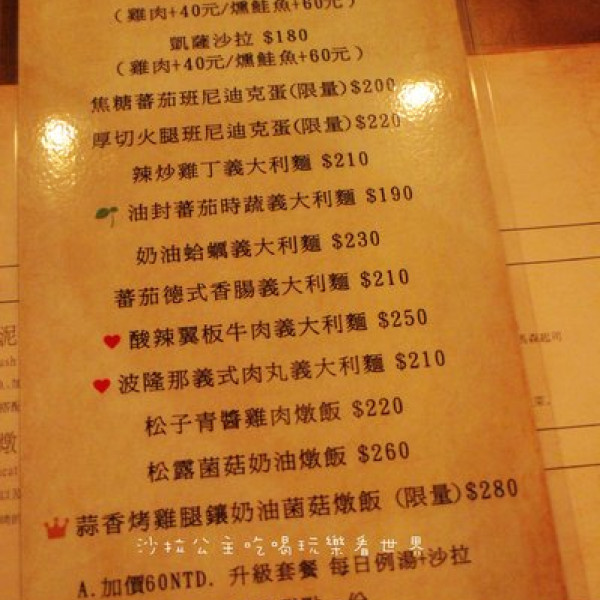 (雞肉+40元/燻鮭魚+60元)
凱薩沙拉 $180
(雞肉+40元/燻鮭魚+60元)
焦糖蕃茄班尼迪克蛋(限量)$200
厚切火腿班尼迪克蛋(限量)$220
辣炒雞丁義大利麵 $210
油封蕃茄時蔬義大利麵 $190
奶油蛤蠣義大利麵 $230
蕃茄德式香腸義大利麵 $210
酸辣翼板牛肉義大利麵 $250
波隆那義式肉丸義大利麵 $210
松子青醬雞肉燉飯 $220
松露菌菇奶油燉飯 $260
蒜香烤雞腿鑲奶油菌菇燉飯 (限量)$280
沙拉公主吃喝玩樂看世界
A.加價60NTD. 升級套餐 每日例湯+沙拉